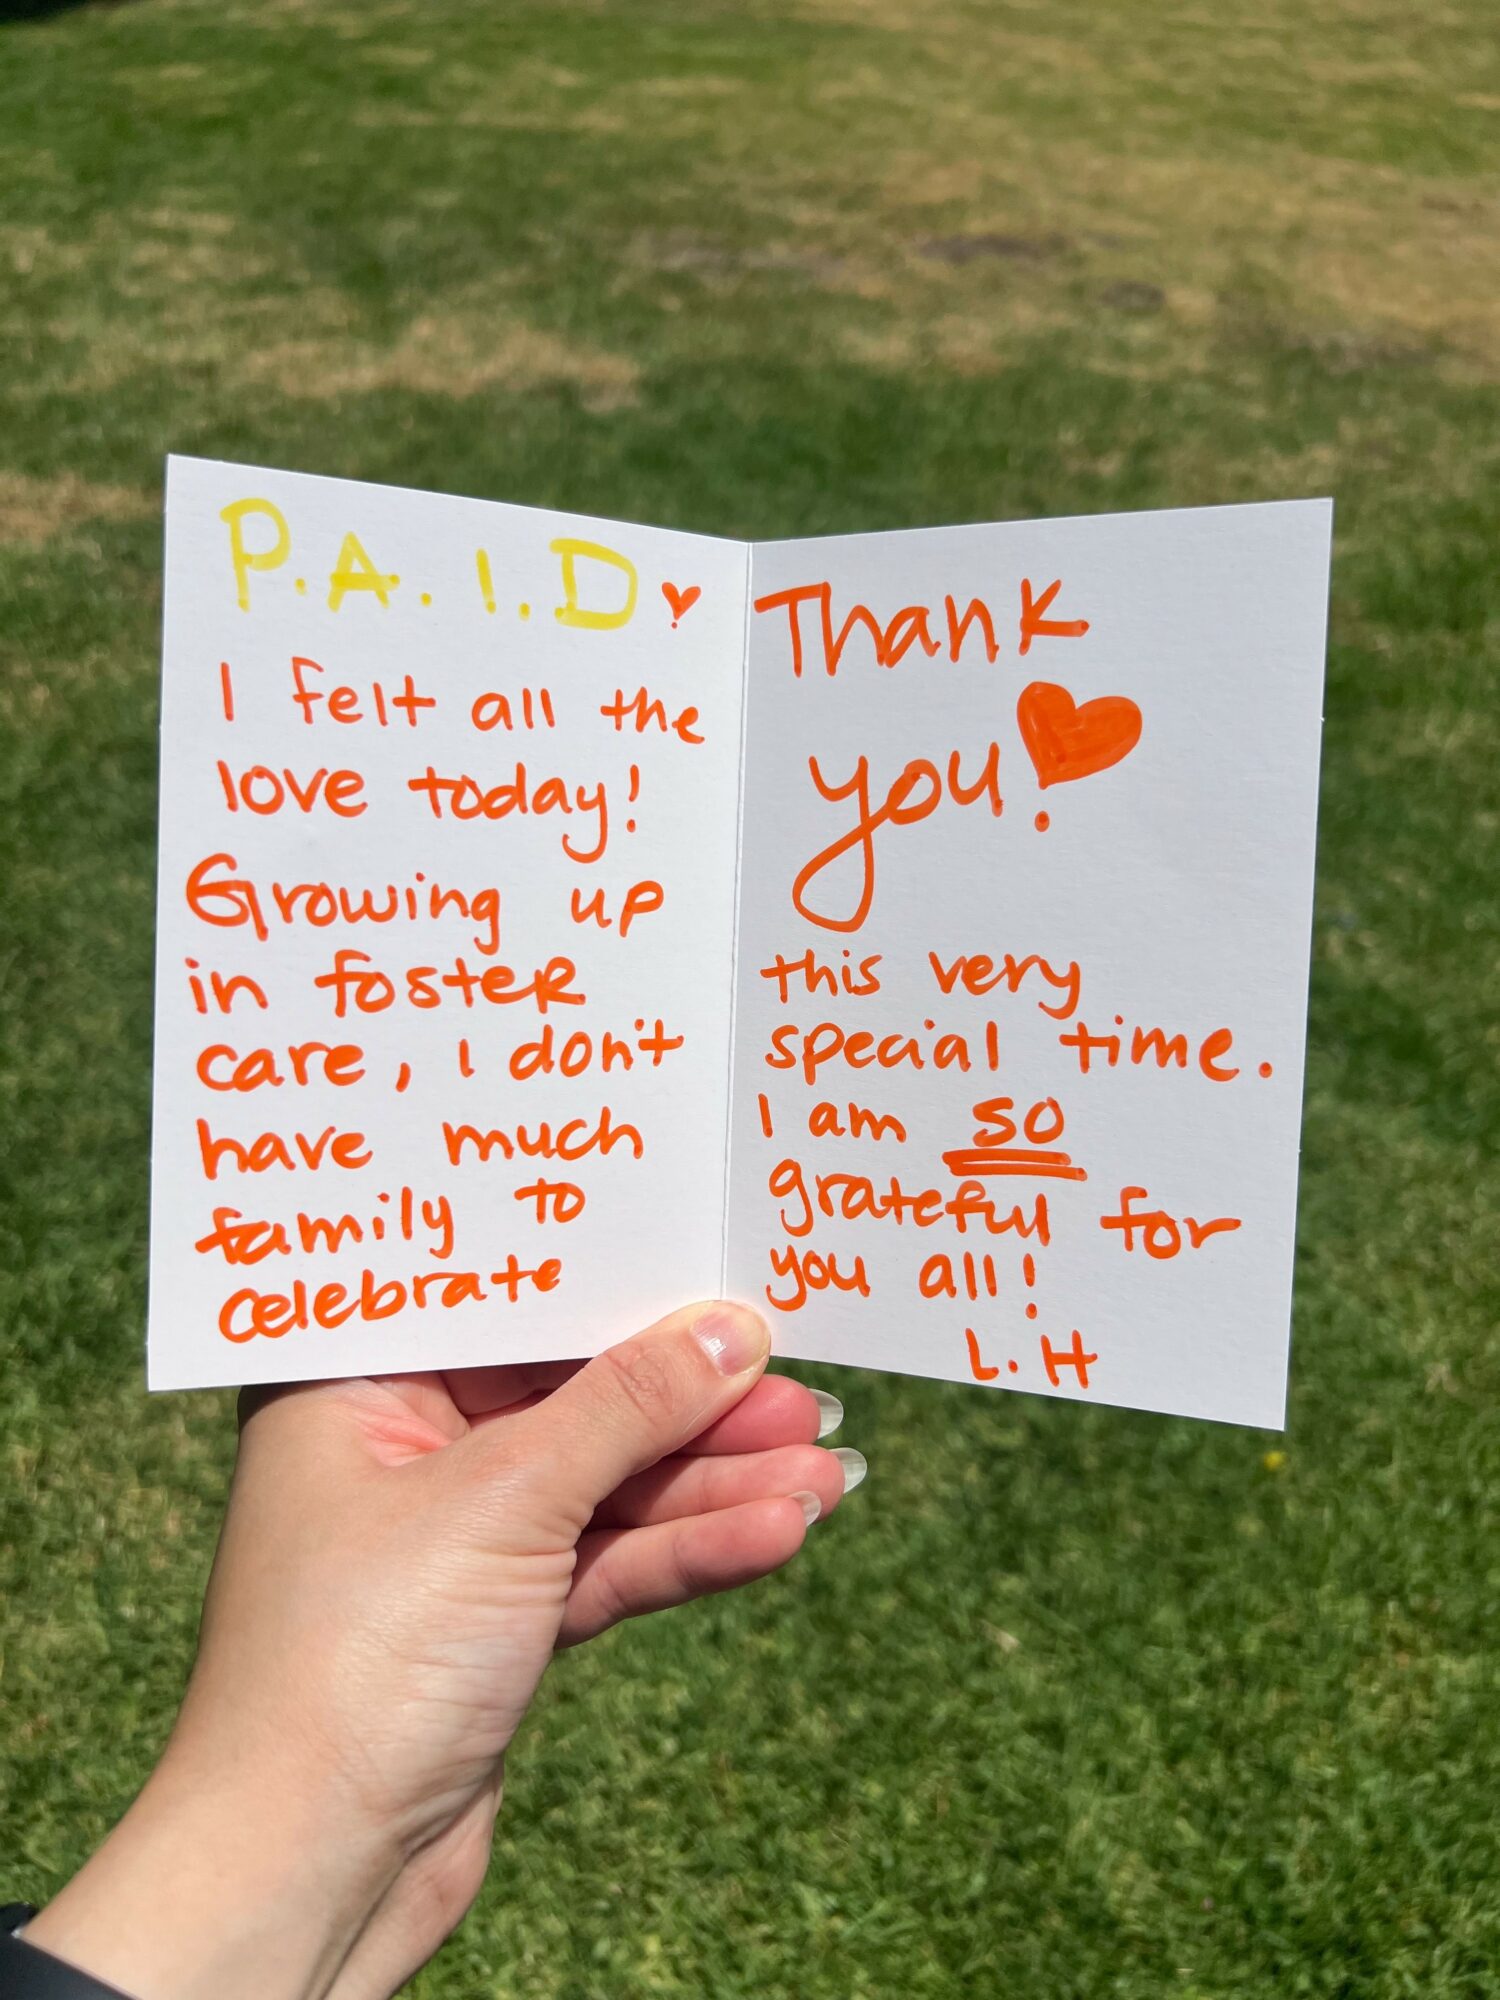 P.A.I.D
I felt all the
love today!
Growing up
in foster
care, I don't
have much
family to
celebrate
Thank
you!
this very
special time.
I am so
grateful for
you all!
L.H